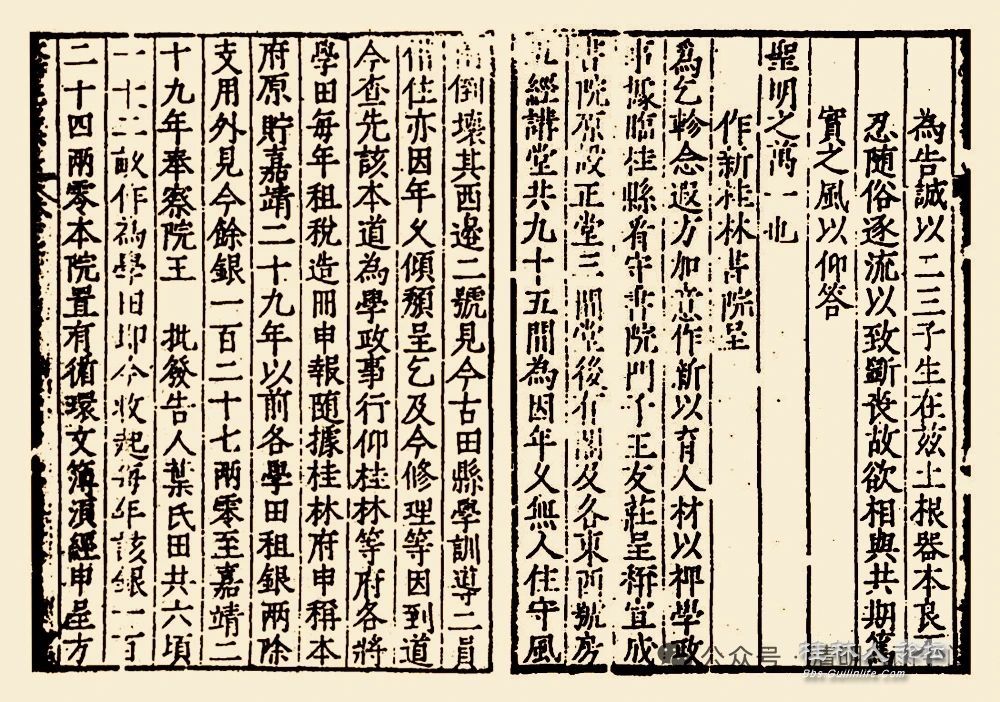 為告誠以二三子生在茲土根器本良不
忍隨俗逐流以致斷喪故欲相與共期篤
實之風以仰答
聖明之萬一也
作新桂林書院呈
為乞軫念遐方加意作新以育人材以裨學政
事據臨桂縣看守書院門子王友莊呈稱宣成
書院原設正堂三間堂後有閣及各東西號房
九經講堂共九十五間為因年久無人住守風
倒壞其西邊二號見今古田縣學訓導二員
借住亦因年久傾頹呈乞及今修理等因到道
今查先該本道為學政事行仰桂林等府各將
學田每年租稅造冊申報隨據桂林府申稱本
府原貯嘉靖二十九年以前各學田租銀兩除
支用外見今餘銀一百二十七兩零至嘉靖二
十九年奉察院王 批發告人葉氏田共六頃
二十二畝作為學田即今收起每年該銀一百
二十四兩零本院置有循環文簿須經申呈方
公众号
桂林人论坛
Bbs.Guilinlife.Com